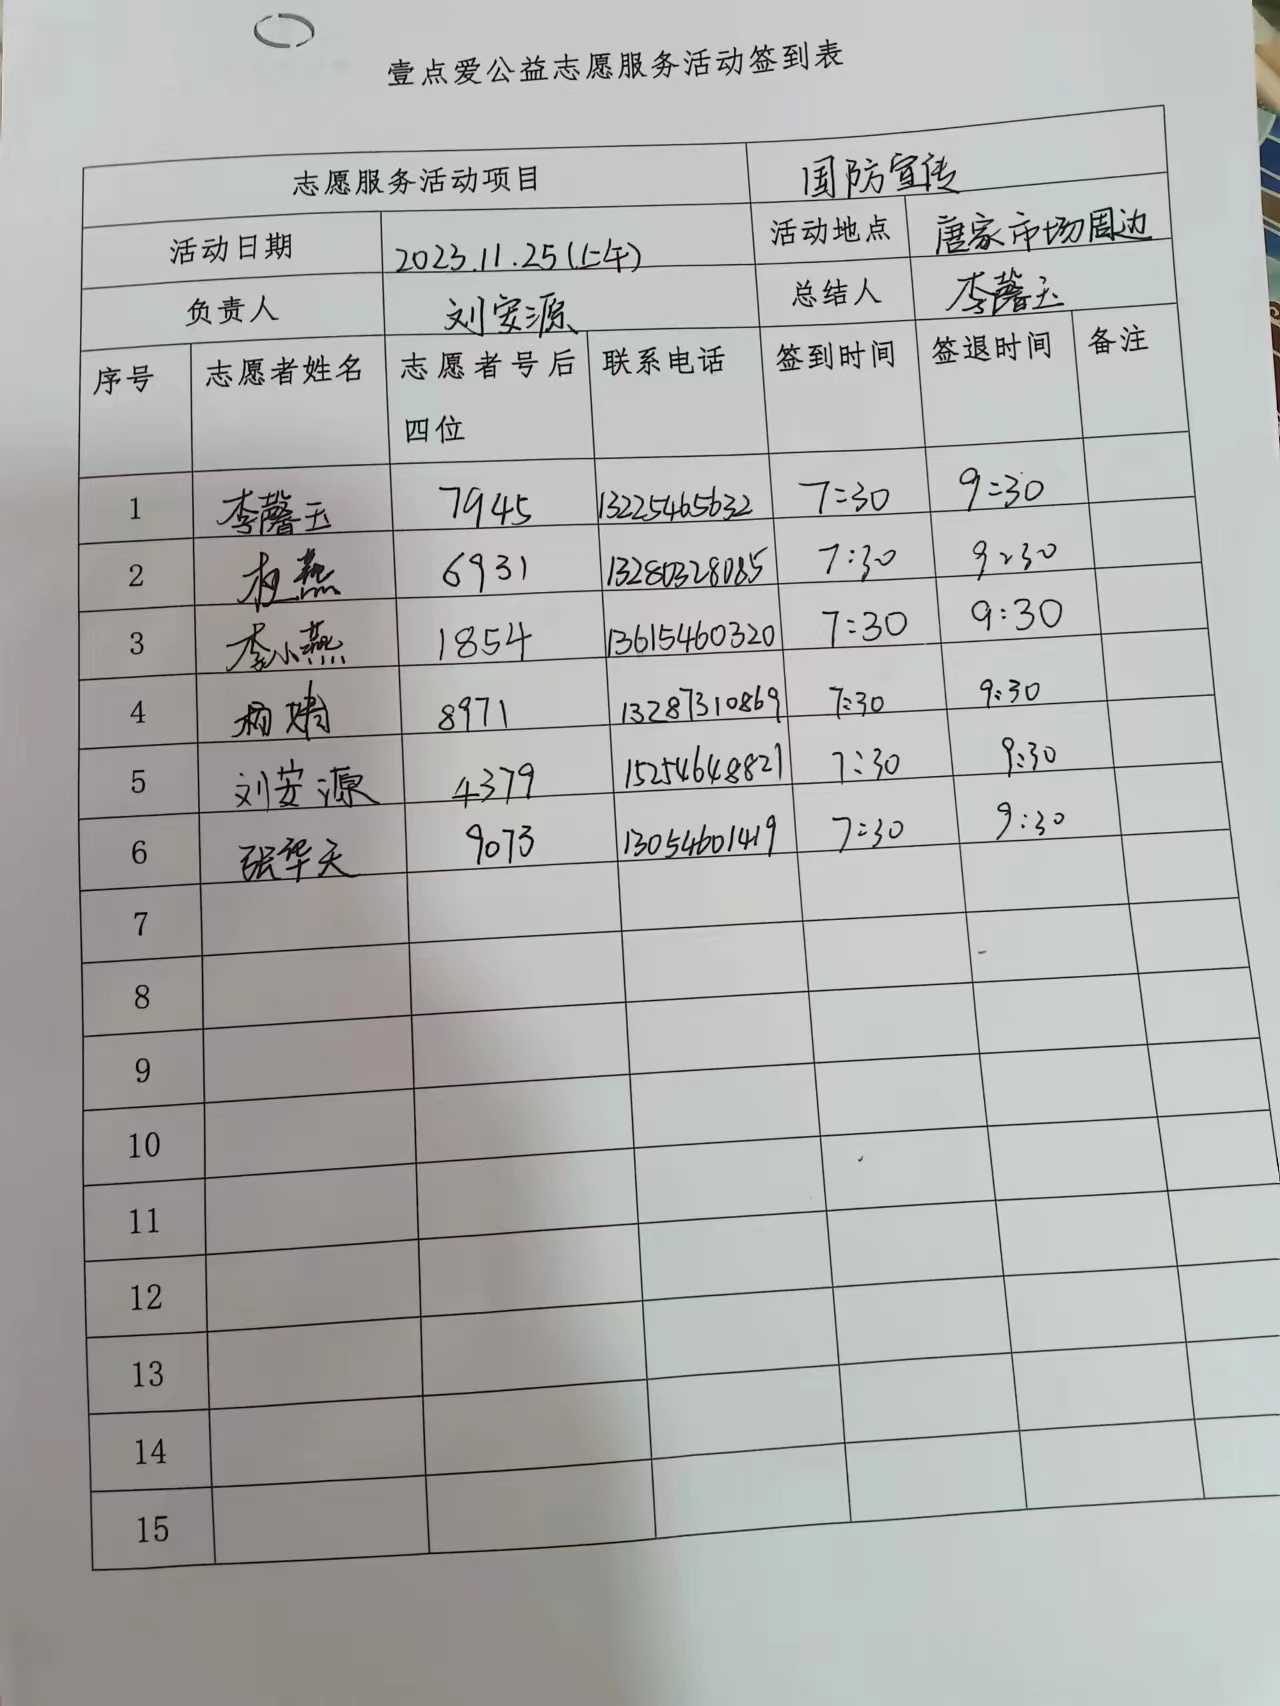 壹点爱公益志愿服务活动签到表
志愿服务活动项目 国防宣传
活动日期 2023.11.25(上午) 活动地点 唐家市场周边
负责人 刘安源 总结人 李馨玉
序号 志愿者姓名 志愿者号后四位 联系电话 签到时间 签退时间 备注
1 李馨玉 7945 13225465632 7:30 9:30
2 燕 6931 13280328085 7:30 9:30
3 李小燕 1854 13615460320 7:30 9:30
4 杨婧 8971 13287310869 7:30 9:30
5 刘安源 4379 15254648821 7:30 9:30
6 张华天 9073 13054601419 7:30 9:30
7
8
9
10
11
12
13
14
15